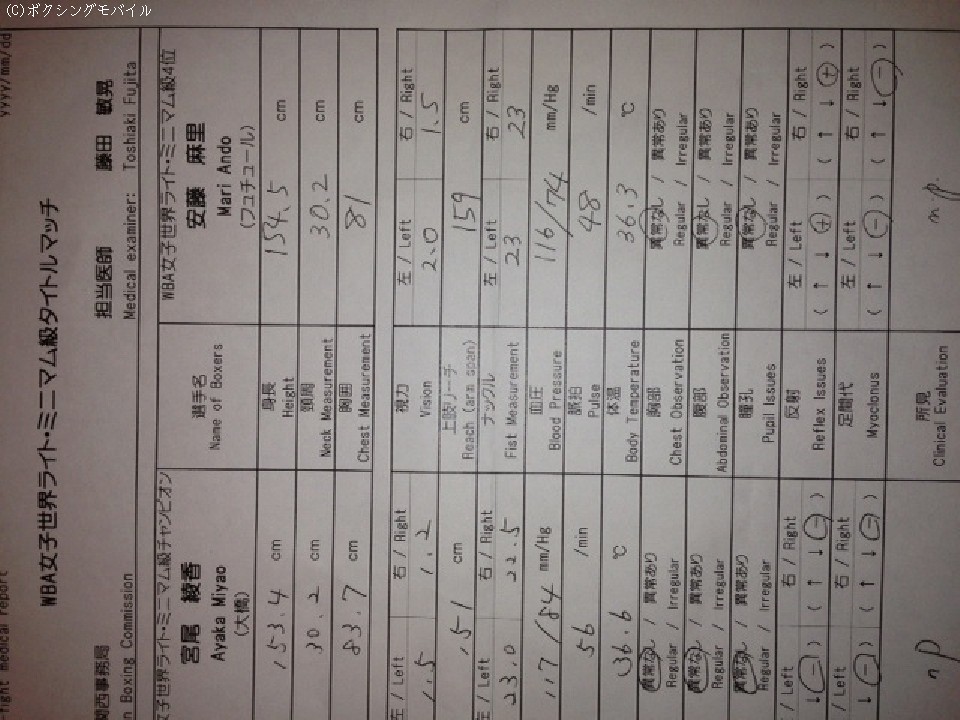 (C)ボクシングモバイル
-fight medical report
yyyy/mm/dd
WBA女子世界ライト・ミニマム級タイトルマッチ
関西事務局
担当医師 藤田 敏晃
n Boxing Commission
Medical examiner: Toshiaki Fujita
女子世界ライト・ミニマム級チャンピオン
WBA女子世界ライト・ミニマム級4位
宮尾 綾香
選手名
安藤 麻里
Ayaka Miyao
Name of Boxers
Mari Ando
(大橋)
(フュチュール)
153.4 cm
身長
Height
154.5 cm
30.2 cm
頸周
Neck Measurement
30.2 cm
83.7 cm
胸囲
Chest Measurement
81 cm
左 / Left 右 / Right
視力
左 / Left 右 / Right
1.5 1.2
Vision
2.0 1.5
151 cm
上肢リーチ
Reach (arm span)
159 cm
左 / Left 右 / Right
ナックル
左 / Left 右 / Right
23.0 22.5
Fist Measurement
23 23
117/84 mm/Hg
血圧
Blood Pressure
116/74 mm/Hg
56 /min
脈拍
Pulse
48 /min
36.6 ℃
体温
Body Temperature
36.3 ℃
異常なし / 異常あり
胸部
異常なし / 異常あり
Regular / Irregular
Chest Observation
Regular / Irregular
異常なし / 異常あり
腹部
異常なし / 異常あり
Regular / Irregular
Abdominal Observation
Regular / Irregular
異常なし / 異常あり
瞳孔
異常なし / 異常あり
Regular / Irregular
Pupil Issues
Regular / Irregular
/ Left 右 / Right
反射
左 / Left 右 / Right
↓ (-) ) ( ↑ ↓ (-) )
Reflex Issues
( ↑ ↓ (+) ) ( ↑ ↓ (+) )
/ Left 右 / Right
足間代
左 / Left 右 / Right
↓ (-) ) ( ↑ ↓ (-) )
Myoclonus
( ↑ ↓ (-) ) ( ↑ ↓ (-) )
np
所見
Clinical Evaluation
n.p.